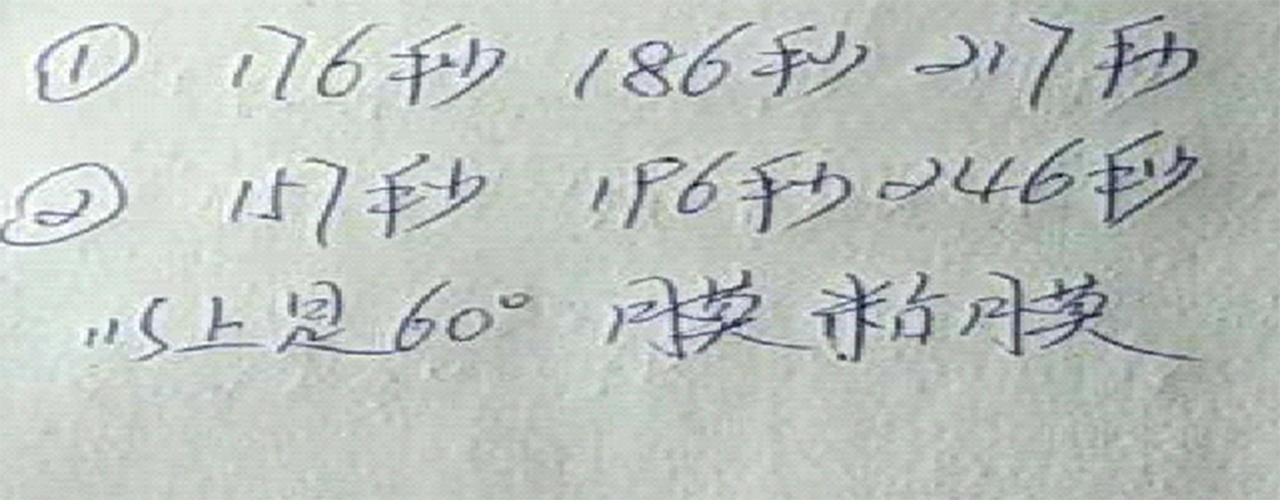 ① 176秒 186秒 217秒
② 157秒 196秒 246秒
以上是60° 膜粘膜